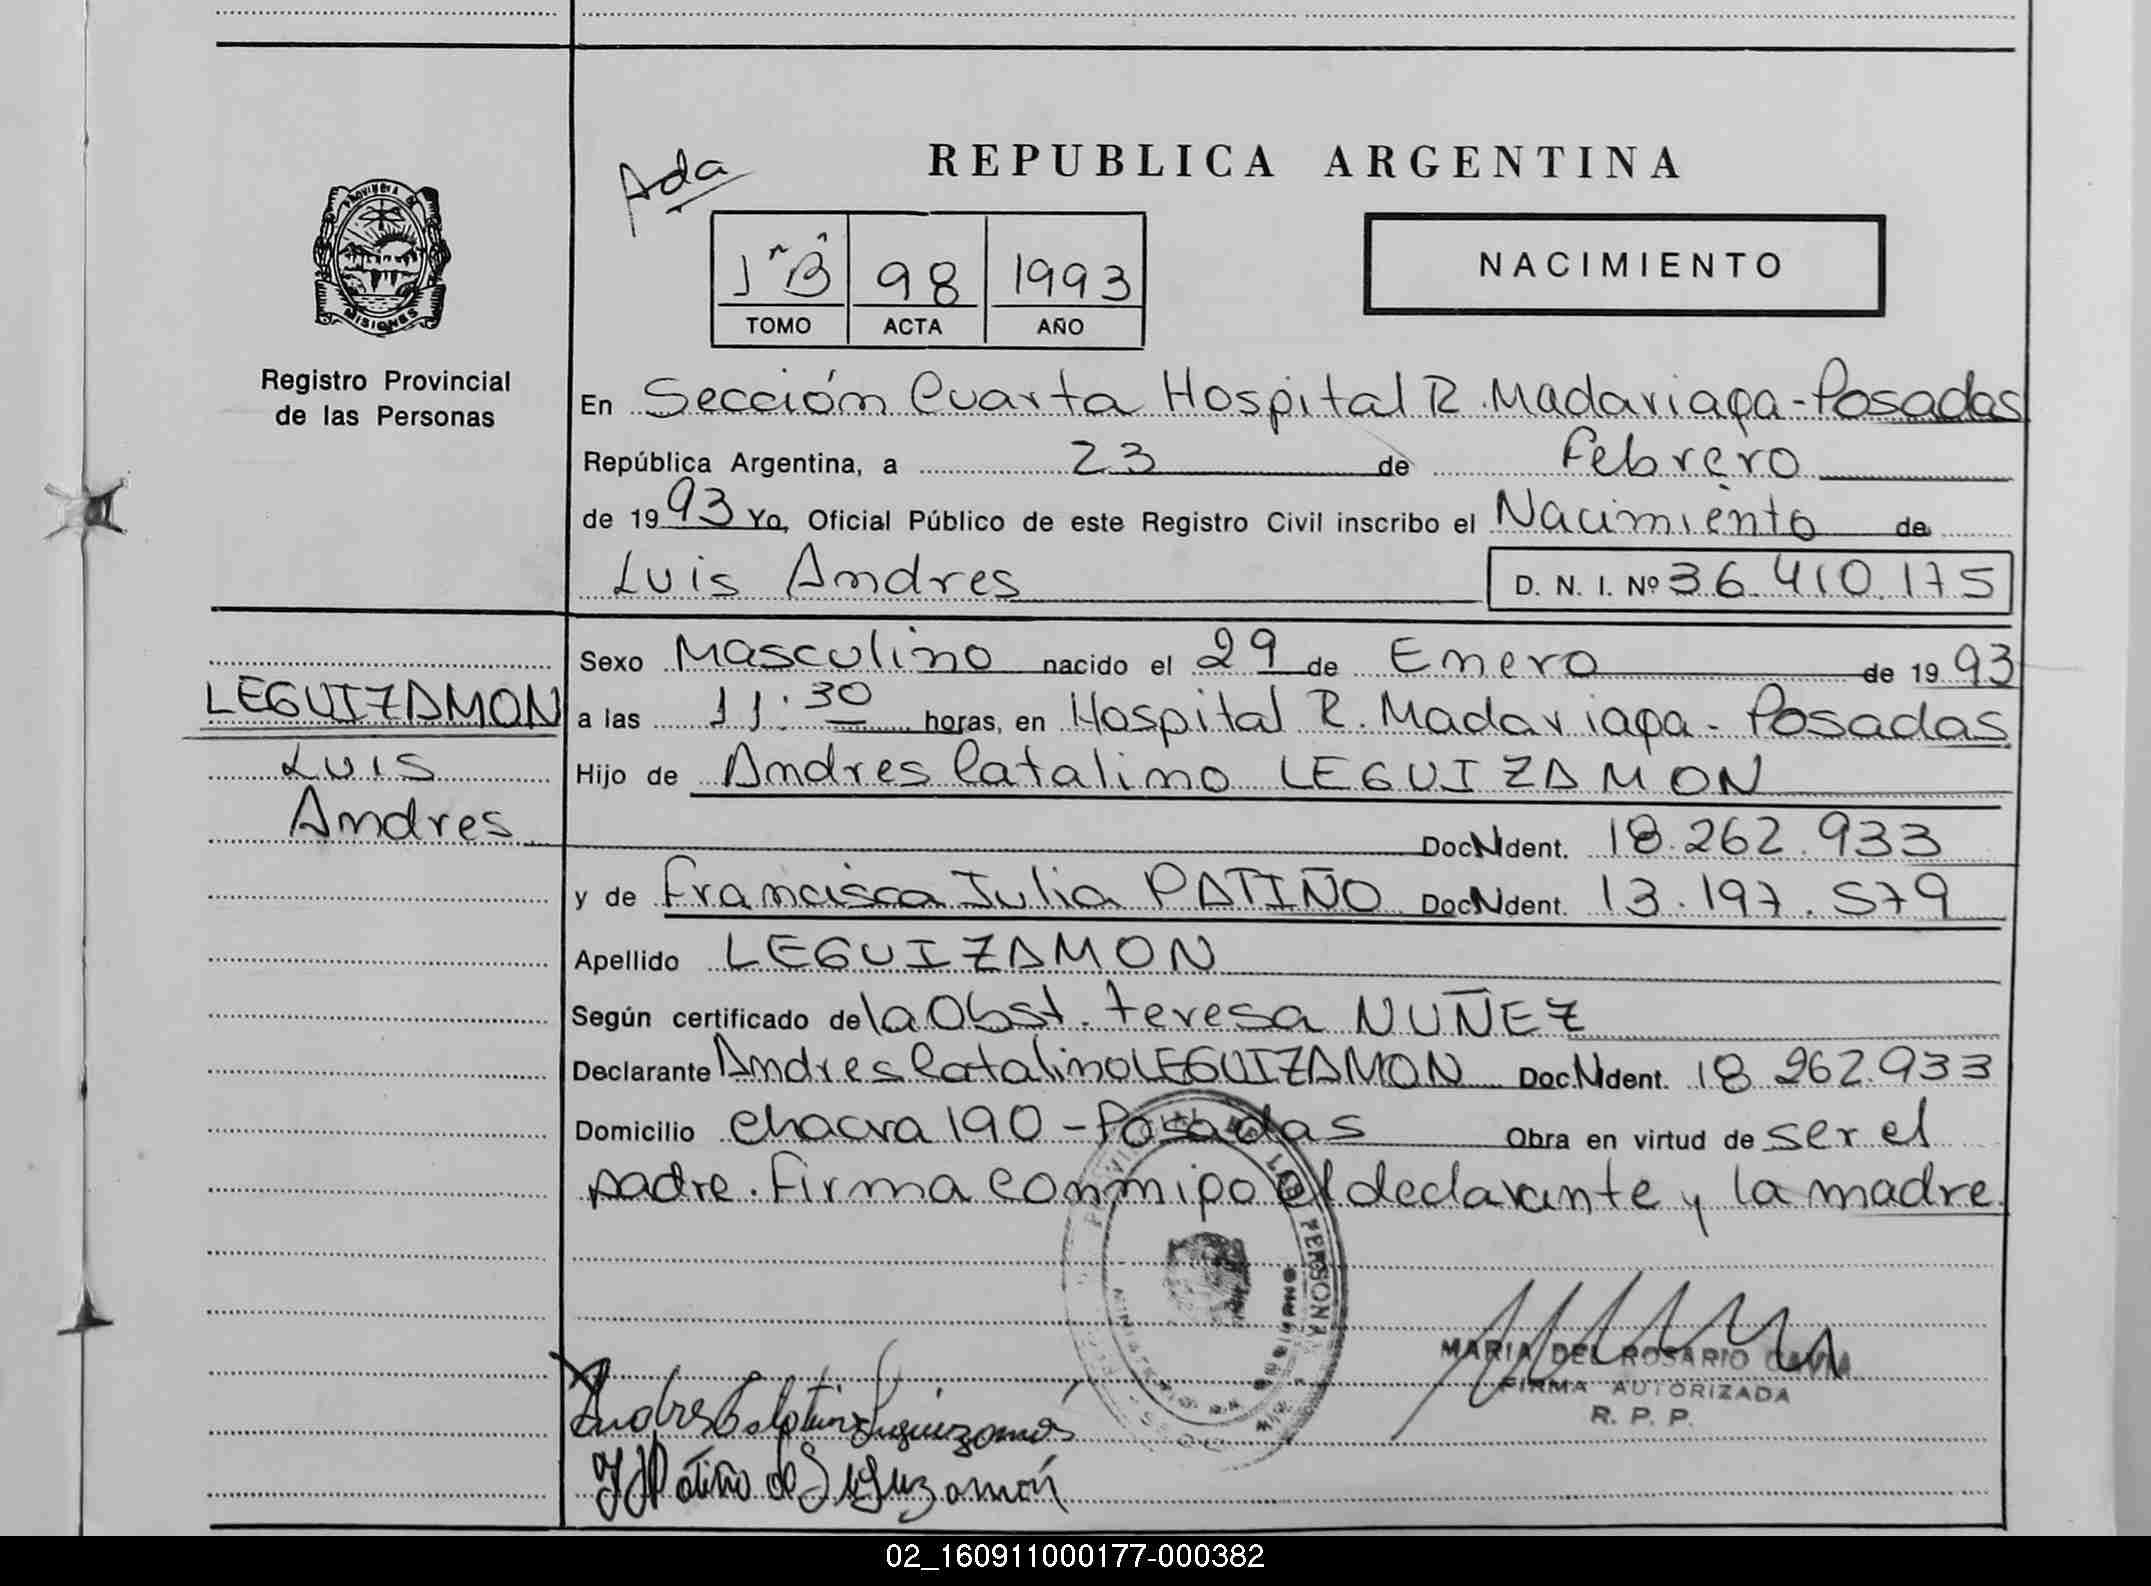 REPUBLICA ARGENTINA
Ada
PROVINCIA DE
MISIONES
Registro Provincial
de las Personas
98 1993
TOMO ACTA AÑO
NACIMIENTO
En Sección Cuarta Hospital R. Madariaga - Posadas
República Argentina, a 23 de Febrero
de 1993 Yo, Oficial Público de este Registro Civil inscribo el Nacimiento de
Luis Andres D. N. I. Nº 36.410.175
LEGUIZAMON
Luis
Andres
Sexo Masculino nacido el 29 de Enero de 1993
a las 11.30 horas, en Hospital R. Madariaga - Posadas
Hijo de Andres Catalino LEGUIZAMON
Doc N Ident. 18.262.933
y de Francisca Julia PATIÑO Doc N Ident. 13.197.579
Apellido LEGUIZAMON
Según certificado de la Obst. Teresa NUÑEZ
Declarante Andres Catalino LEGUIZAMON Doc. N Ident. 18 262.933
Domicilio Chacra 190 - Posadas Obra en virtud de ser el
padre. Firma conmigo el declarante y la madre.
MARIA DEL ROSARIO
FIRMA AUTORIZADA
R. P. P.
Andres Catalino Leguizamón
J Patiño de Leguizamón
02_160911000177-000382